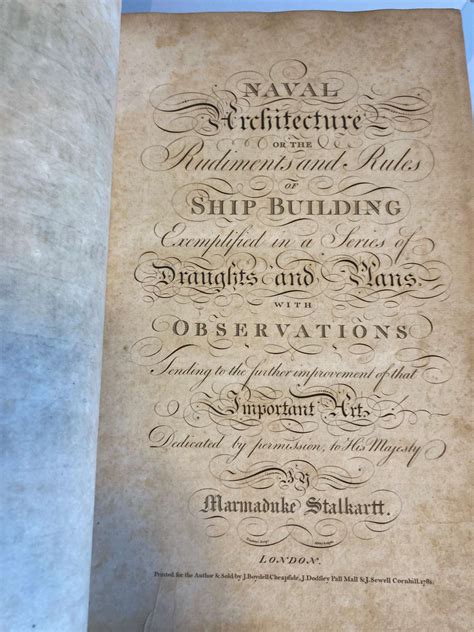 NAVAL
Architecture
OR THE
Rudiments and Rules
OF
SHIP BUILDING
Exemplified in a Series of
Draughts and Plans
WITH
OBSERVATIONS
Tending to the further improvement of that
Important Art.
Dedicated by permission, to His Majesty
BY
Marmaduke Stalkartt.
LONDON.
Printed for the Author & Sold by J. Boydell Cheapside, J. Dodsley Pall Mall & J. Sewell Cornhill. 1781.